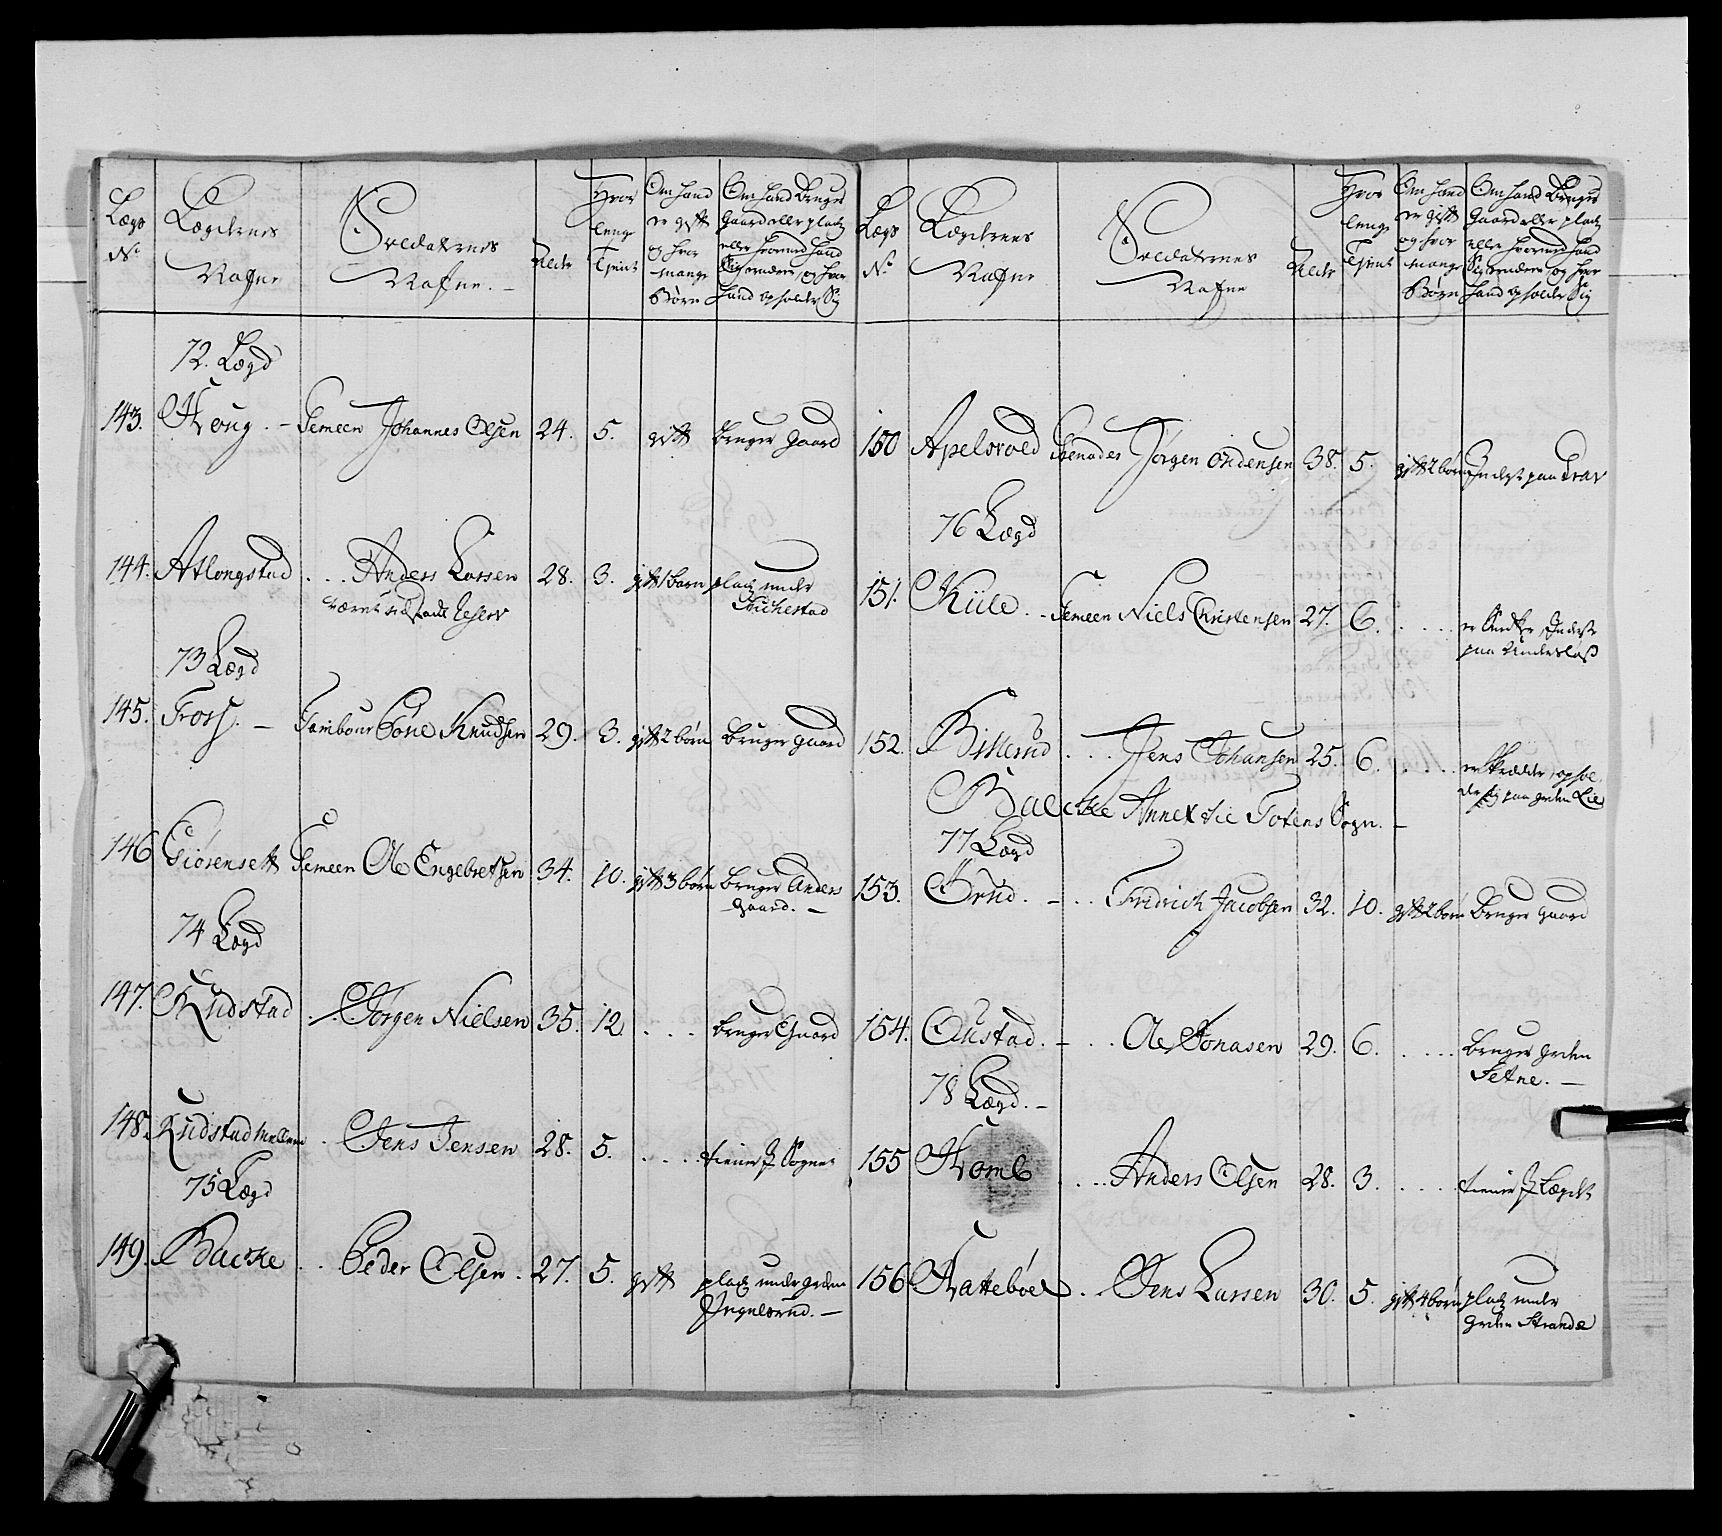 Lægs
No
Lægdernes
Nafne
Soldaternes
Nafne.
Alder
Hvor
lenge
Tient
Om hand
er gift
og hvor
mange
Børn
Om hand bruger
Gaard eller plads
eller hvormed hand
Sig ernærer, og hvor
hand opholder Sig
72. Lægd
143. Houg. - Gemeen Johannes Olsen 24. 5. gift bruger gaard
144. Atlongstad ... Anders Larsen 28. 3. gift 1 barn plads under
73 Lægd
145. Tross. - Tambour Tore Knudsen 29. 3. gift 2 børn bruger gaard
146 Giøsensett Gemeen Ole Engebretsen 34. 10. gift 3 børn bruger Anders
gaard. -
74 Lægd
147. Rudstad ... Jørgen Nielsen 35. 12 .... bruger Gaard
148. Rudstad Mellem . Jens Jensen 28. 5. .... tiener J Sognet
75 Lægd
149. Backe ... Peder Olsen. 27. 5. gift plads under grden
Lægs
No
Lægdernes
Nafne
Soldaternes
Nafne
Alder
Hvor
lenge
Tient
Om hand
er gift
og hvor
mange
Børn
Om hand bruger
Gaard eller plads
eller hvormed hand
Sig ernærer og hvor
hand opholder Sig
150 Apelsvold Grenader Jørgen Andensen 38. 5. gift 2 børn Inderst paa
76 Lægd
151. Kiile .. Gemeen Niels Christensen 27. 6. .... er Inderst
paa
152. Billerud .... Jens Johansen 25. 6. .... er Skrædder, ophol
der sig paa grden Lie
Balcke Annex til Totens Sogn. -
77 Lægd
153. Ørud. - .. Fridrich Jacobsen 32. 10. gift 2 børn bruger gaard
154. Oustad. - ... Ole Jonasen 29. 6. .... bruger grden
Setne. -
78 Lægd. -
155 Homb .... Anders Olsen 28. 3. .... tiener J Lægdet
156 Hattebøel .. Jens Larsen 30. 5. gift 4 børn plads under
grden Strande